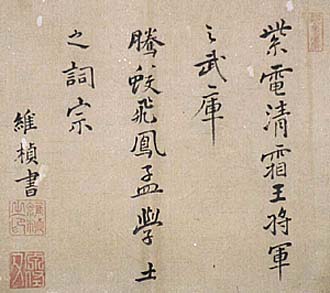 紫電清霜王將軍
之武庫
騰蛟飛鳳孟學士
之詞宗
維楨書